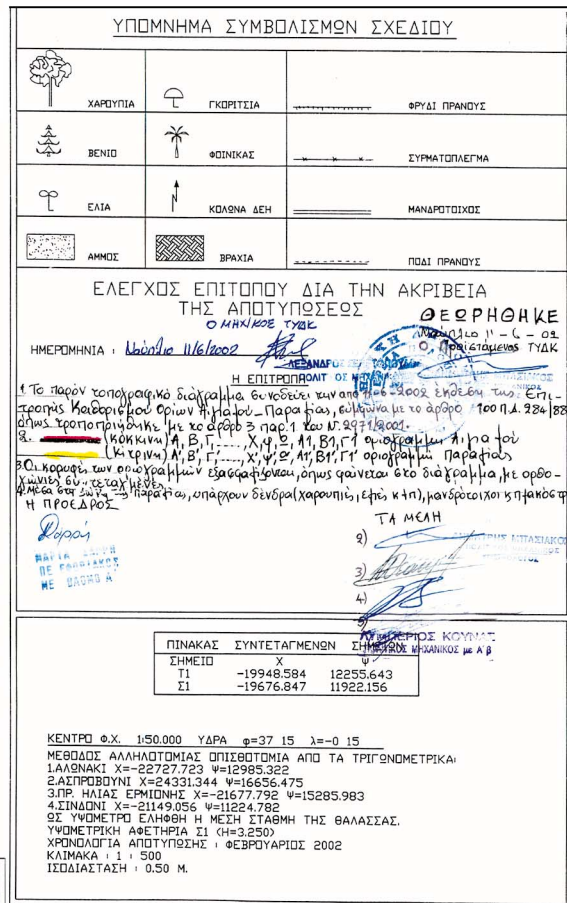 ΥΠΟΜΝΗΜΑ ΣΥΜΒΟΛΙΣΜΩΝ ΣΧΕΔΙΟΥ
ΧΑΡΟΥΠΙΑ ΓΚΟΡΙΤΣΙΑ ΦΡΥΔΙ ΠΡΑΝΟΥΣ
ΒΕΝΙΟ ΦΟΙΝΙΚΑΣ ΣΥΡΜΑΤΟΠΛΕΓΜΑ
ΕΛΙΑ ΚΟΛΩΝΑ ΔΕΗ ΜΑΝΔΡΟΤΟΙΧΟΣ
ΑΜΜΟΣ ΒΡΑΧΙΑ ΠΟΔΙ ΠΡΑΝΟΥΣ
ΕΛΕΓΧΟΣ ΕΠΙΤΟΠΟΥ ΔΙΑ ΤΗΝ ΑΚΡΙΒΕΙΑ
ΤΗΣ ΑΠΟΤΥΠΩΣΕΩΣ
Ο ΜΗΧ/ΚΟΣ ΤΥΔΚ
ΘΕΩΡΗΘΗΚΕ
Ναύπλιο 11-6-02
Ο Προϊστάμενος ΤΥΔΚ
ΗΜΕΡΟΜΗΝΙΑ : Ναύπλιο 11/6/2002
Η ΕΠΙΤΡΟΠΗ
1. Το παρόν τοπογραφικό διάγραμμα συνοδεύει την από 11-6-2002 έκθεση της Επι-
τροπής Καθορισμού Ορίων Αιγιαλού-Παραλίας, σύμφωνα με το άρθρο 100 Π.Δ. 284/88
όπως τροποποιήθηκε με το άρθρο 3 παρ.1 του Ν. 2971/2001.
2. (κόκκινη) Α, Β, Γ, .... Χ, Ψ, Ω, Α1, Β1, Γ1 οριογραμμή Αιγιαλού
(κίτρινη) Α', Β', Γ', .... Χ', Ψ', Ω', Α1', Β1', Γ1' οριογραμμή Παραλίας
3. Οι κορυφές των οριογραμμών εξασφαλίζονται, όπως φαίνεται στο διάγραμμα, με ορθο-
γώνιες συντεταγμένες.
4. Μέσα στη ζώνη παραλίας, υπάρχουν δένδρα (χαρουπιές, ελιές κ λ π), μανδρότοιχοι
Η ΠΡΟΕΔΡΟΣ
ΤΑ ΜΕΛΗ
2)
3)
4)
5)
ΠΕ ΕΦΟΡΙΑΚΟΣ
ΜΕ ΒΑΘΜΟ Α'
ΚΟΥΝΑΣ
ΜΗΧΑΝΙΚΟΣ με Α β
ΠΙΝΑΚΑΣ ΣΥΝΤΕΤΑΓΜΕΝΩΝ ΣΗΜΕΙΩΝ
ΣΗΜΕΙΟ Χ Ψ
Τ1 -19948.584 12255.643
Σ1 -19676.847 11922.156
ΚΕΝΤΡΟ Φ.Χ. 1:50.000 ΥΔΡΑ φ=37 15 λ=-0 15
ΜΕΘΟΔΟΣ ΑΛΛΗΛΟΤΟΜΙΑΣ ΟΠΙΣΘΟΤΟΜΙΑ ΑΠΟ ΤΑ ΤΡΙΓΩΝΟΜΕΤΡΙΚΑ:
1.ΑΛΩΝΑΚΙ Χ=-22727.723 Ψ=12985.322
2.ΑΣΠΡΟΒΟΥΝΙ Χ=24331.344 Ψ=16656.475
3.ΠΡ. ΗΛΙΑΣ ΕΡΜΙΟΝΗΣ Χ=-21677.792 Ψ=15285.983
4.ΣΙΝΔΟΝΙ Χ=-21149.056 Ψ=11224.782
ΩΣ ΥΨΟΜΕΤΡΟ ΕΛΗΦΘΗ Η ΜΕΣΗ ΣΤΑΘΜΗ ΤΗΣ ΘΑΛΑΣΣΑΣ.
ΥΨΟΜΕΤΡΙΚΗ ΑΦΕΤΗΡΙΑ Σ1 (Η=3.250)
ΧΡΟΝΟΛΟΓΙΑ ΑΠΟΤΥΠΩΣΗΣ : ΦΕΒΡΟΥΑΡΙΟΣ 2002
ΚΛΙΜΑΚΑ : 1 : 500
ΙΣΟΔΙΑΣΤΑΣΗ : 0.50 Μ.